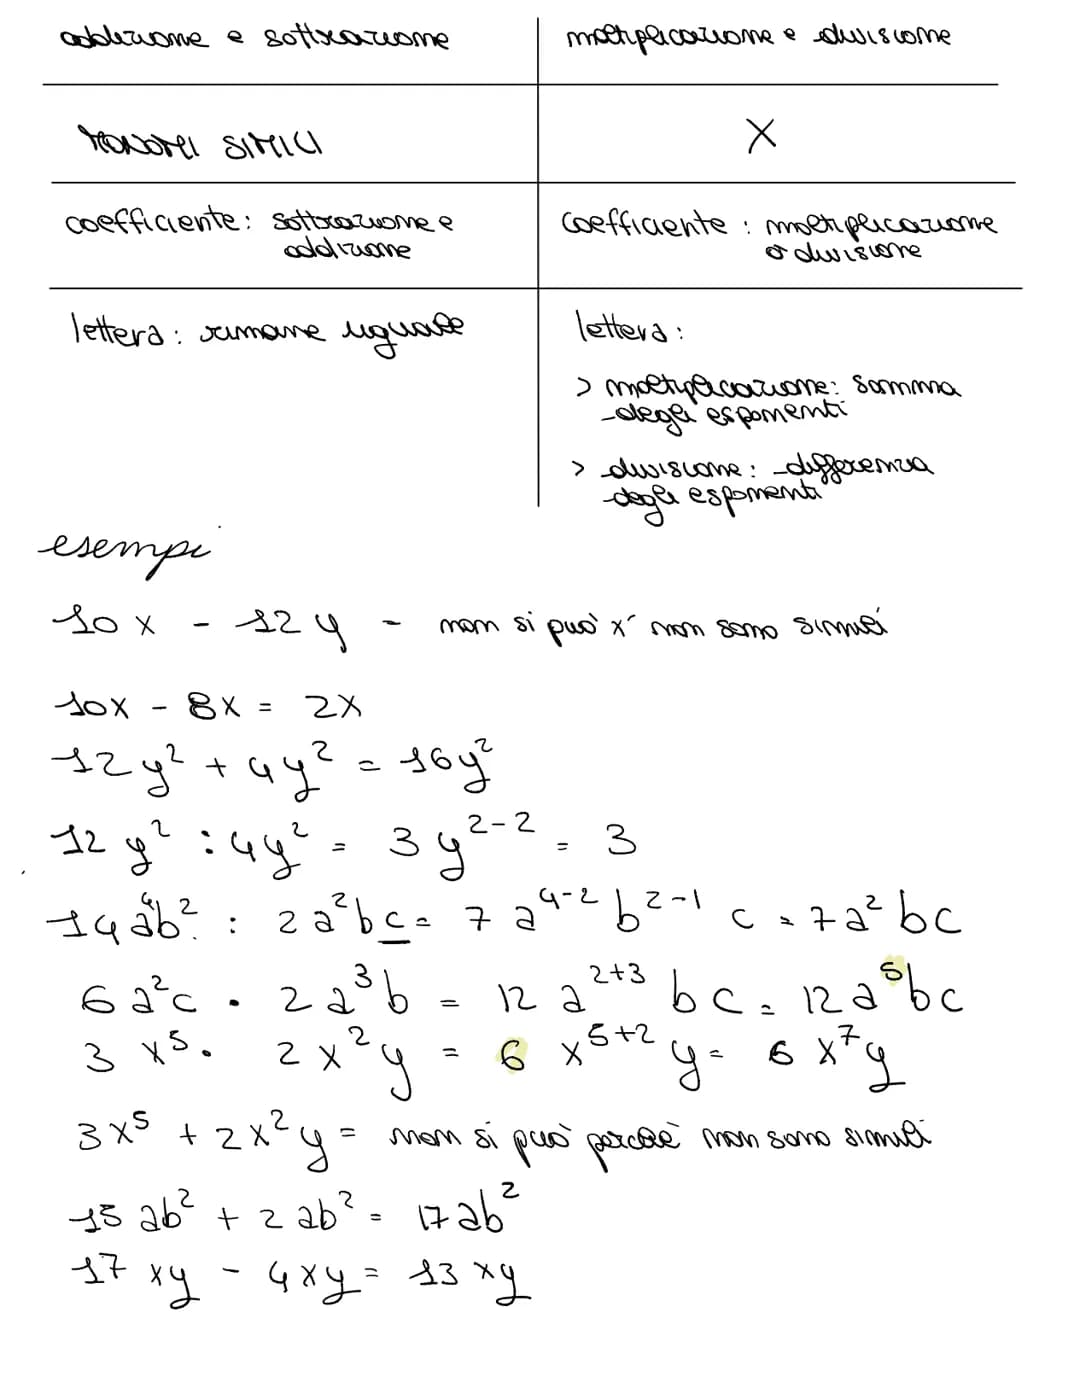 addizione e sottrazione
moltiplicazione e divisione
MONOMI SIMILI
X
coefficiente: sottrazione e
addizione
coefficiente : moltiplicazione
o divisione
lettera: rimane uguale
lettera:
> moltiplicazione: somma
degli esponenti
> divisione: differenza
degli esponenti
esempi
10x - 12y - non si può x´ non sono simili
10x - 8x = 2x
12y² + 4y² = 16y²
12y² : 4y² = 3y²⁻² = 3
14a⁴b² : 2a²bc = 7a⁴⁻²b²⁻¹c = 7a²bc
6a²c · 2a³b = 12a²⁺³bc = 12a⁵bc
3x⁵ · 2x²y = 6x⁵⁺²y = 6x⁷y
3x⁵ + 2x²y = non si può perchè non sono simili
15ab² + 2ab² = 17ab²
17xy - 4xy = 13xy